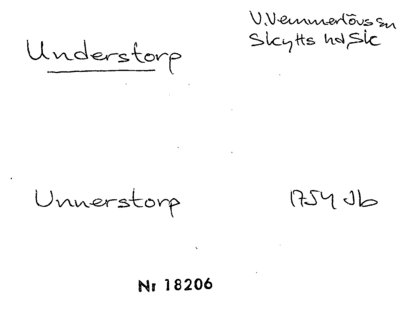 Understorp
V. Vemmerlövs sn
Skytts hd, Sk
Unnerstorp
1754 Jb
Nr 18206